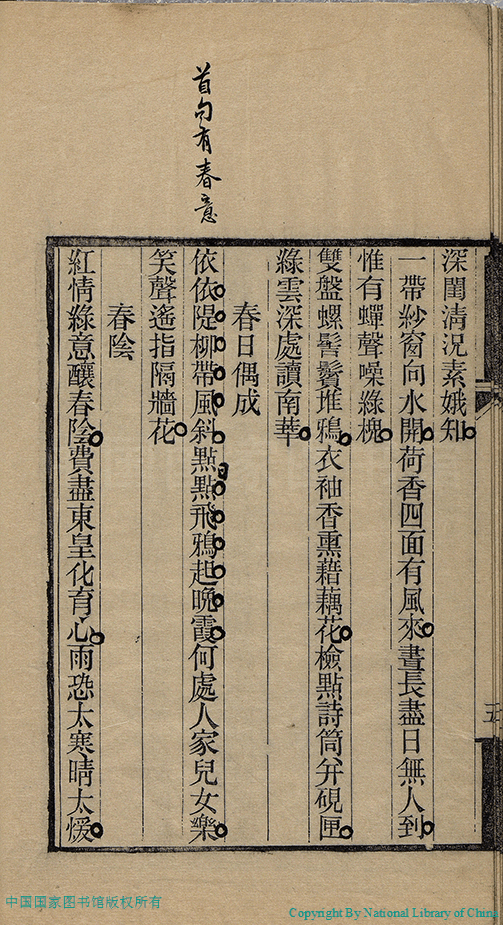 首句有春意
深閨清況素娥知
一帶紗窗向水開荷香四面有風來晝長盡日無人到
惟有蟬聲噪綠槐
雙盤螺髻鬢堆鴉衣袖香熏藉藕花檢點詩筒幷硯匣
綠雲深處讀南華
春日偶成
依依隄柳帶風斜點點飛鴉起晚霞何處人家兒女樂
笑聲遙指隔牆花
春陰
紅情綠意釀春陰費盡東皇化育心雨恐太寒晴太煖
五
中国国家图书馆版权所有
Copyright By National Library of China